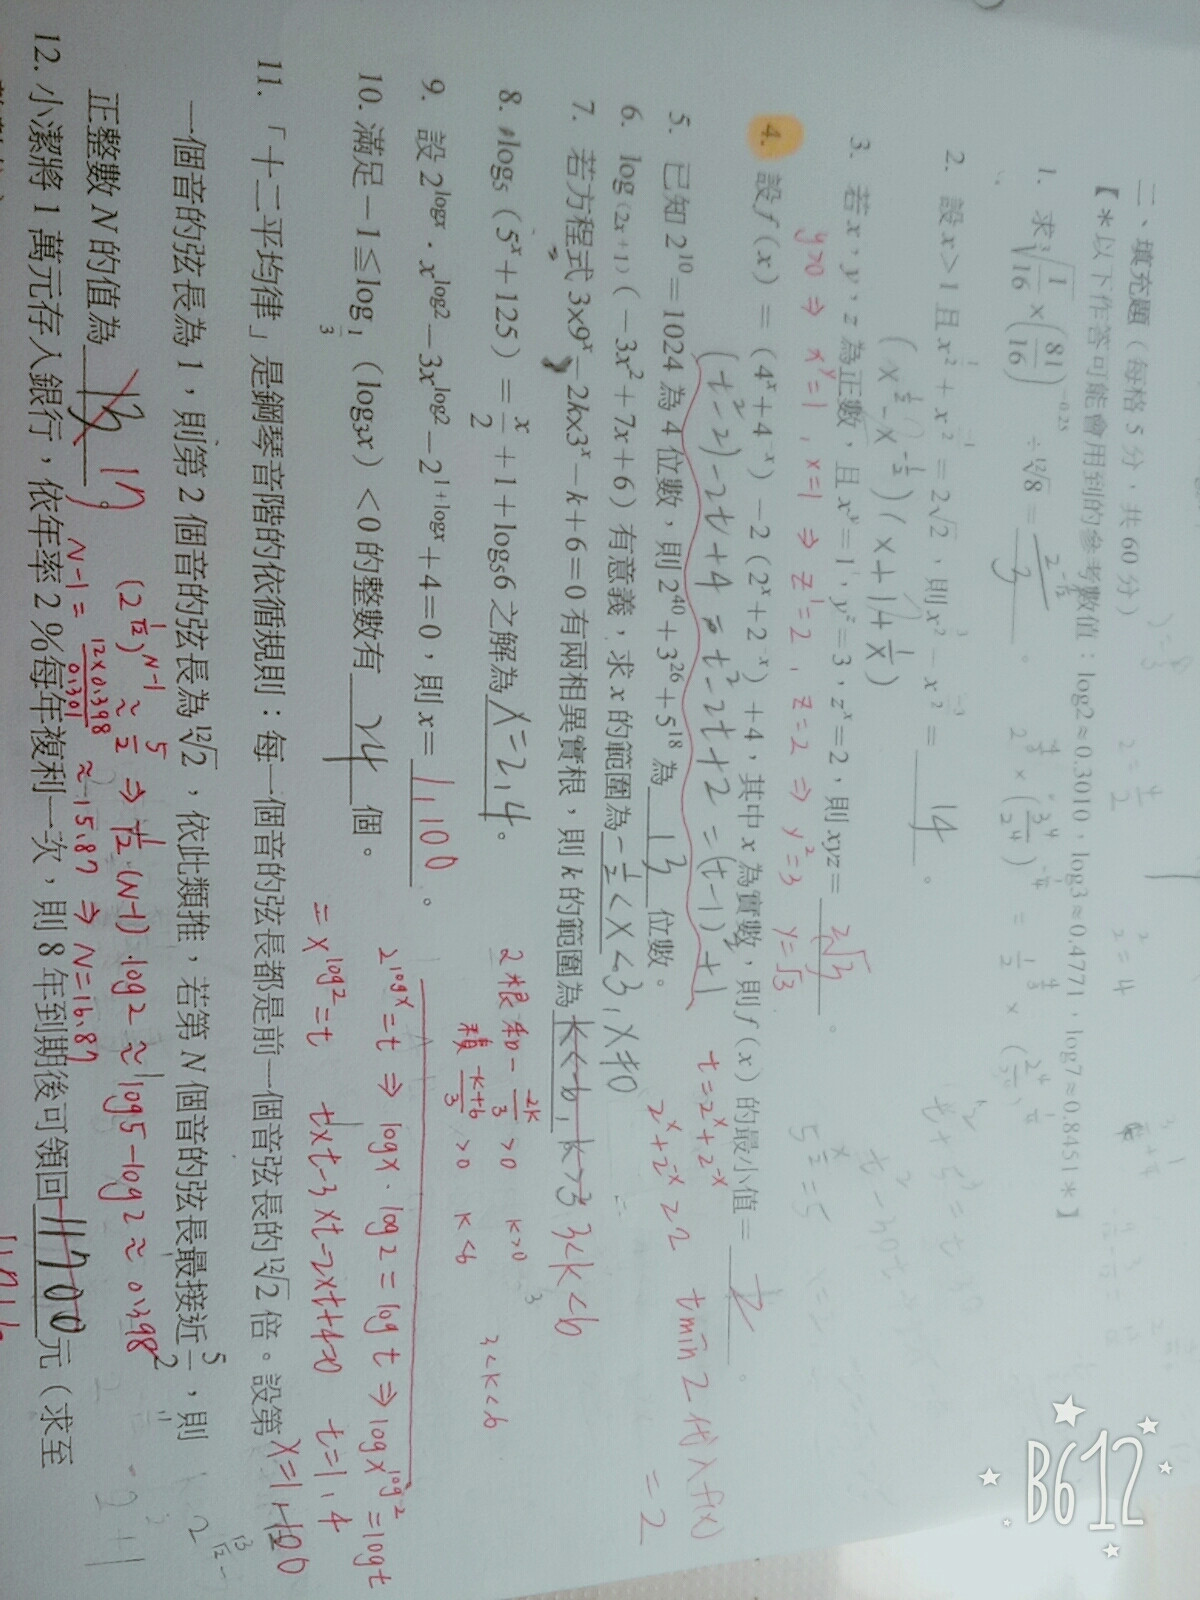 二、填充題（每格5分，共60分）
【*以下作答可能會用到的參考數值：log2≈0.3010，log3≈0.4771，log7≈0.8451*】
1. 求∛(1/16)×(81/16)^(-0.25)÷¹²√8=
2. 設x>1且x^(1/2)+x^(-1/2)=2√2，則x^(3/2)-x^(-3/2)= 14 。
(x^(1/2)-x^(-1/2))(x+1+1/x)
3. 若x，y，z為正數，且x^y=1，y^z=3，z^x=2，則xyz= 2√3 。
y>0⇒x^y=1，x=1⇒z^1=2，z=2⇒y²=3 y=√3
4. 設f(x)=(4^x+4^(-x))-2(2^x+2^(-x))+4，其中x為實數，則f(x)的最小值= 2 。
(t²-2)-2t+4=t²-2t+2=(t-1)²+1
t=2^x+2^(-x)
2^x+2^(-x)≥2 tmin 2 代入f(x)
=2
5. 已知2^10=1024為4位數，則2^40+3^26+5^18為 13 位數。
6. log(2x+1)(-3x²+7x+6)有意義，求x的範圍為 -1/2<x<3，x≠0
7. 若方程式3x9^x-2kx3^x-k+6=0有兩相異實根，則k的範圍為 k<-6，k>3 3<k<6
2根和 - -2k/3 >0 k>0
積 -k+6/3 >0 k<6
3<k<6
8. log5(5^x+125)=x/2+1+log5 6之解為 x=2,4 。
9. 設2^logx．x^log2-3x^log2-2^(1+logx)+4=0，則x= 1,100 。
2^logx=t⇒logx．log2=logt⇒logx^log2=logt
=x^log2=t t×t-3×t-2×t+4=0 t=1，4
x=1,100
10. 滿足-1≦log 1/3 (log3x)<0的整數有 24 個。
11. 「十二平均律」是鋼琴音階的依循規則：每一個音的弦長都是前一個音弦長的¹²√2倍。設第
一個音的弦長為1，則第2個音的弦長為¹²√2，依此類推，若第N個音的弦長最接近5/2，則
正整數N的值為 13 17 。
(2^(1/12))^(N-1)≈5/2⇒1/12(N-1)．log2≈log5-log2≈0.398
N-1=12×0.398/0.301≈15.87⇒N=16.87
12. 小潔將1萬元存入銀行，依年率2%每年複利一次，則8年到期後可領回 11700 元（求至
B612